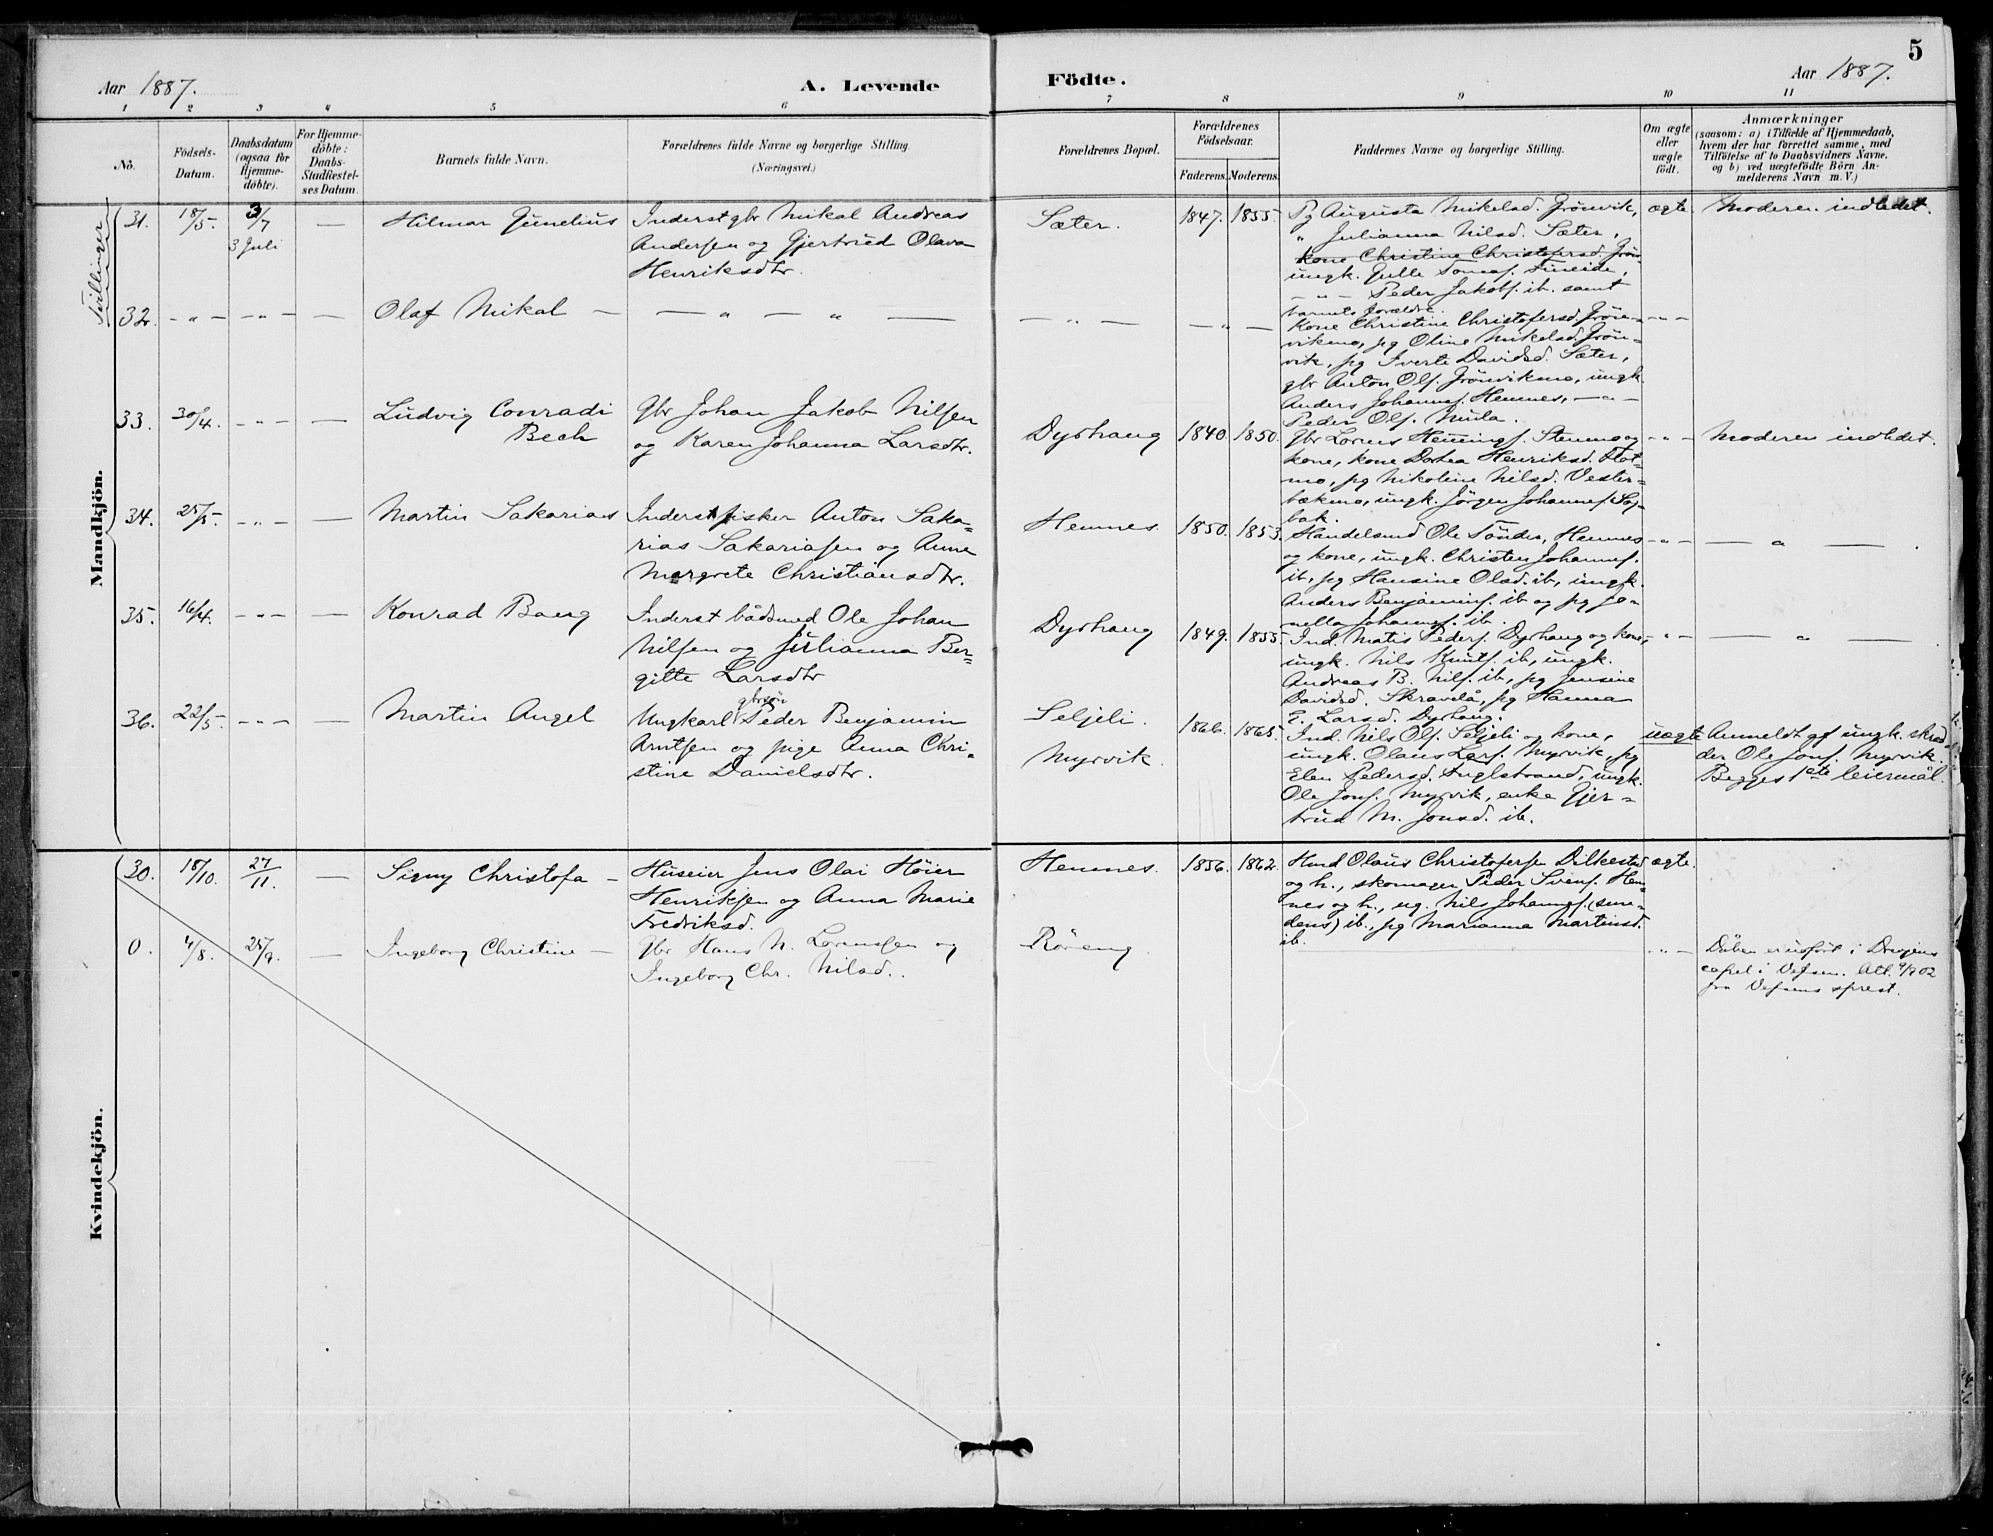 5
Aar 1887.
A. Levende
Födte.
Aar 1887.
1 2 3 4 5 6 7 8 9 10 11
No.
Födsels-
Datum.
Daabsdatum
(ogsaa for
Hjemme-
döbte).
For Hjemme-
döbte:
Daabs-
Stadfæstel-
ses Datum.
Barnets fulde Navn.
Forældrenes fulde Navne og borgerlige Stilling.
(Næringsvei.)
Forældrenes Bopæl.
Forældrenes
Födselsaar.
Faderens. Moderens.
Faddernes Navne og borgerlige Stilling.
Om ægte
eller
uægte
födt.
Anmærkninger
(saasom: a) i Tilfælde af Hjemmedaab,
hvem der har forrettet samme, med
Tilföielse af to Daabsvidners Navne.
og b) ved uægtefödte Börn An-
melderens Navn m. V.)
Mandkjön.
Tvillinger
31.
18/5.
3/7
3 Juli
—
Hilmar Gunelius
Inderst gbr Mikal Andreas
Andersen og Gjertrud Olava
Henriksdtr.
Sæter.
1847.
1855.
Pg Augusta Mikelsd. Grönvik,
" Julianna Nilsd. Sæter,
Kone Christine Christofersd. Grön
ungk. Gulle Tomas. Fineide,
— " — Peder Jakobs. ib. samt
barnets forældre.
ægte
Moderen indledet.
32.
— " —
— " —
—
Olaf Mikal —
— " — " —
— " —
— " —
Kone Christine Christofersd. Grön-
vikmo, pg Oline Mikelsd. Grön-
vik, pg Iverte Davidsd. Sæter,
gbr Anton Ols. Grönvikmo, ungk.
Anders Johannes. Hemnes, — " —
Peder Ols. Mula.
— " —
33.
30/4.
— " —
—
Ludvig Conradi
Bech
Gbr Johan Jakob Nilsen
og Karen Johanna Larsdtr.
Dyrhaug
1840.
1850.
Gbr Lorens Hennings. Stenmo og
kone, kone Dortea Henriksd. Flot-
mo, pg Nikoline Nilsd. Vester-
bækmo, ungk. Jörgen Johannes.
bak.
— " —
Moderen indledet.
34.
25/5.
— " —
—
Martin Sakarias
Inderst fisker Anton Saka-
rias Sakariasen og Anne
Margrete Christiansdtr.
Hemnes
1850.
1853.
Handelsmd Ole Tönder, Hemnes
og kone, ungk. Christen Johannes.
ib, pg Hansine Olsd. ib, ungk.
Anders Benjamins. ib og pg Jo-
nella Johannes. ib.
— " —
— " —
35.
16/4.
— " —
—
Konrad Baeng
Inderst bådsmed Ole Johan
Nilsen og Julianna Ber-
gitte Larsdtr
Dyrhaug
1849.
1855.
Ind. Matis Peders. Dyrhaug og kone,
ungk. Nils Knuts. ib, ungk.
Andreas B. Nils. ib, pg Jensine
Davidsd. Skravlå, pg Hanna
E. Larsd. Dyrhaug.
— " —
— " —
36.
22/5.
— " —
—
Martin Angel
gbrsön
Ungkarl Peder Benjamin
Arntsen og pige Anna Chri-
stine Danielsdtr.
Seljeli.
Myrvik.
1866.
1865.
Ind. Nils Ols. Seljeli og kone,
ungk. Olaus Lars. Myrvik, pg
Elen Pedersd. Inglstrand, ungk.
Ole Jons. Myrvik, enke Gjer-
trud M. Jonsd. ib.
uægte
Anmeldt af ungk. skræd
der Ole Jons. Myrvik.
Begges 1ste leiermål.
Kvindekjön.
30.
18/10.
27/11.
—
Signy Christofa —
Huseier Jens Olai Höier
Henriksen og Anna Marie
Fredriksd.
Hemnes.
1856.
1862.
Hmd Olaus Christofersen Dilkestad
og h., skomager Peder Svens. Hem-
nes og h., ug. Nils Johannes. (smu-
dens) ib, pg Marianna Martinsd.
ib.
ægte.
0.
4/8.
25/9.
—
Ingeborg Christine —
Gbr Hans N. Lorenssen og
Ingeborg Chr. Nilsd.
Röreng
— " —
Dåben er udfört i Drevjens
capel i Vefsen. Att. 9/7 02
fra Vefsens sprest.